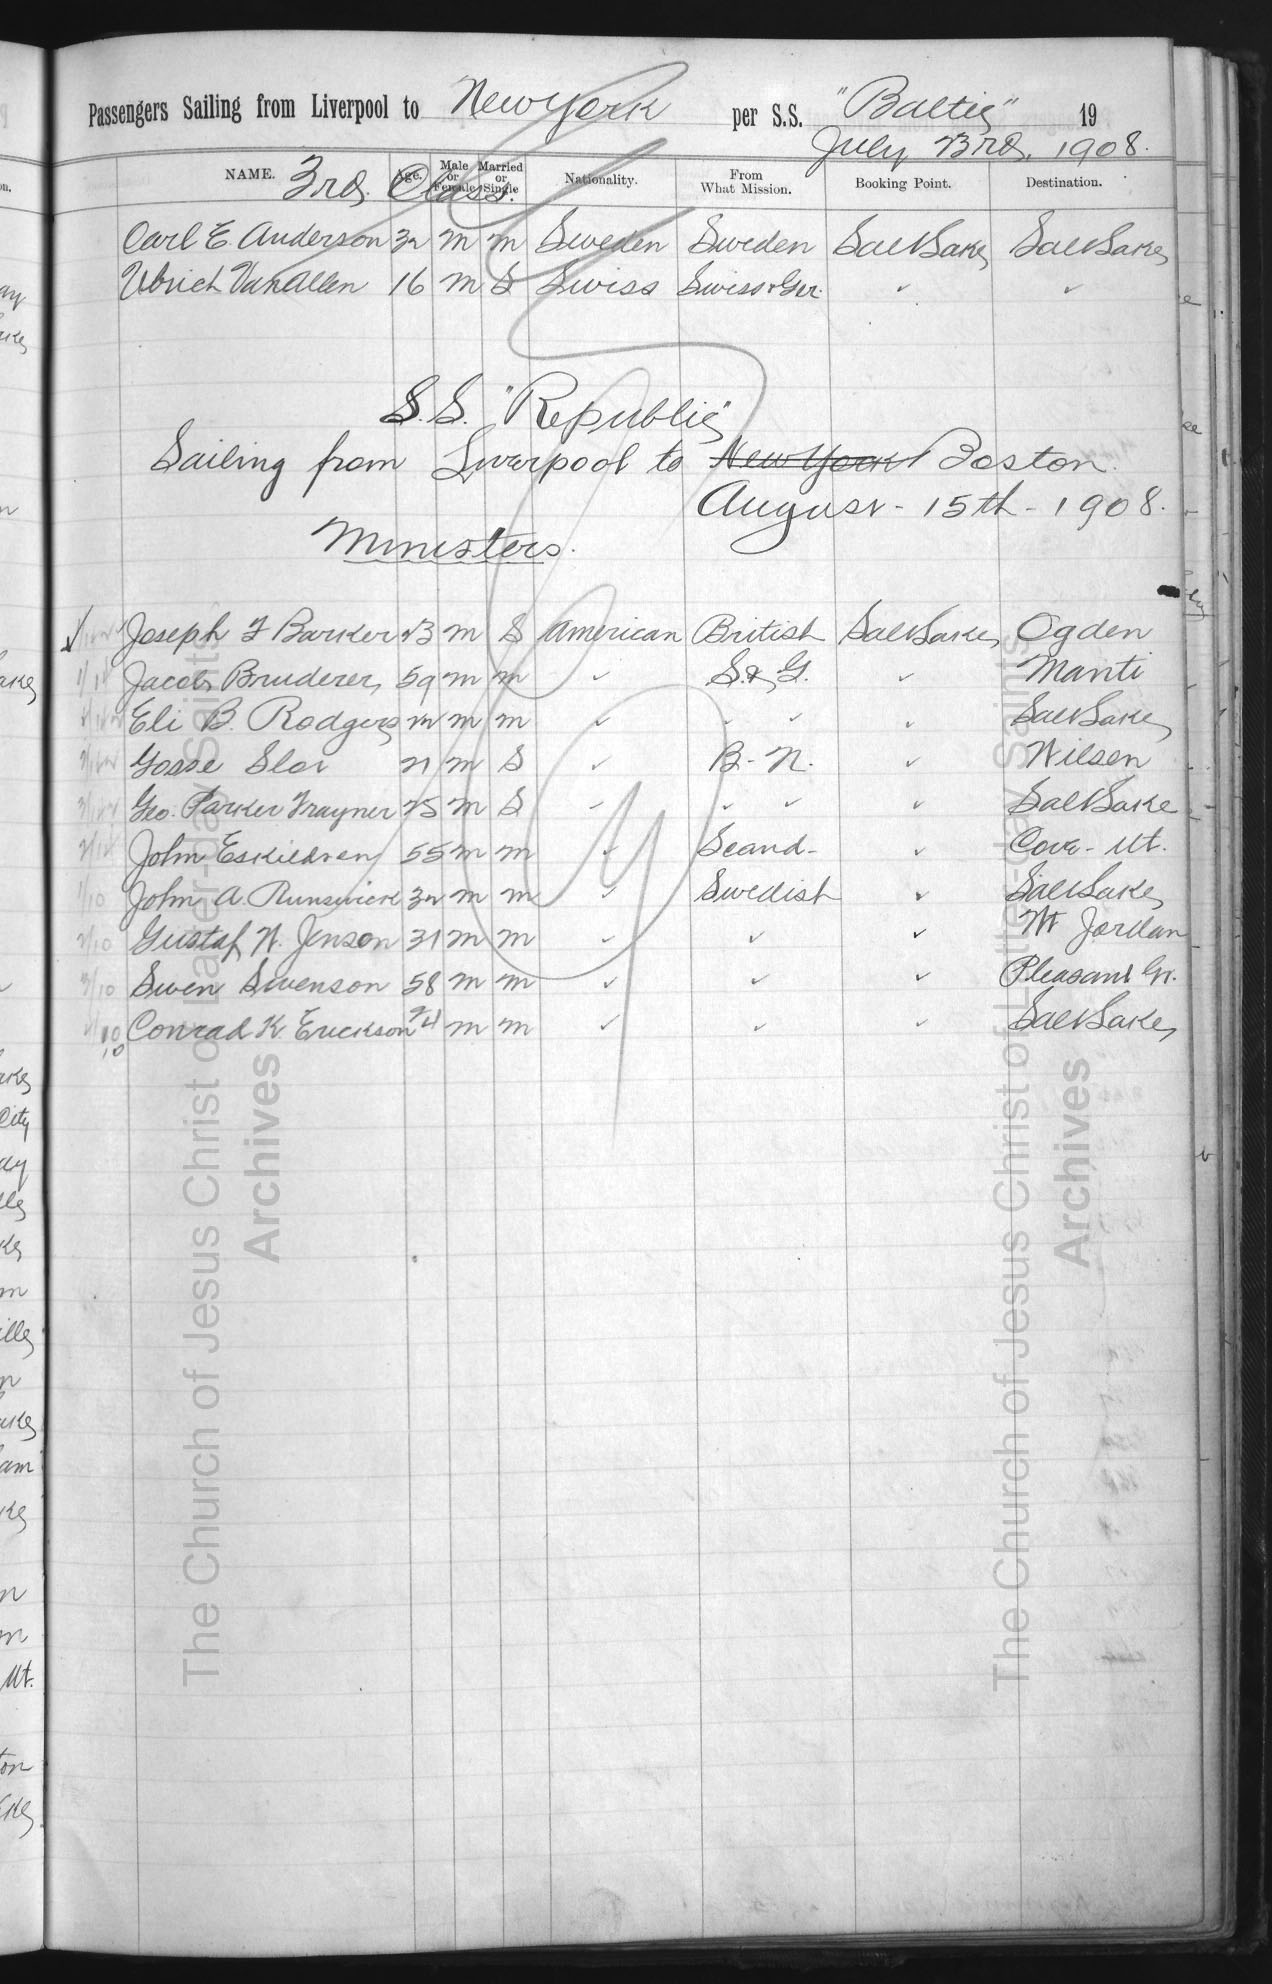 Passengers Sailing from Liverpool to New York per S.S. "Baltic" 19
July 3rd, 1908.
NAME. Age. Male or Female Married or Single Nationality. From What Mission. Booking Point. Destination.
3rd Class.
Carl E. Anderson 32 m m Sweden Sweden Salt Lake Salt Lake
Ulrich VanAllen 16 m S Swiss Swiss & Ger. ✓ ✓
S.S. "Republic"
Sailing from Liverpool to New York Boston.
August - 15th - 1908.
Ministers.
Joseph F Barker 23 m S American British Salt Lake Ogden
Jacob Bruderer 59 m m ✓ S. & G. ✓ Manti
Eli B. Rodgers m m ✓ ✓ ✓ ✓ Salt Lake
Gosse Slot 21 m S ✓ B - N. ✓ Wilson
Geo. Parker Trayner 25 m S ✓ ✓ ✓ ✓ Salt Lake
John Eskildsen 55 m m ✓ Scand - ✓ Cove - Ut.
John A. Runswick 32 m m ✓ Swedish ✓ Salt Lake
Gustaf W. Jenson 31 m m ✓ ✓ ✓ Wt Jordan
Swen Swenson 58 m m ✓ ✓ ✓ Pleasant Gr.
Conrad K. Erickson 24 m m ✓ ✓ ✓ Salt Lake
The Church of Jesus Christ of Latter-day Saints
Archives
The Church of Jesus Christ of Latter-day Saints
Archives